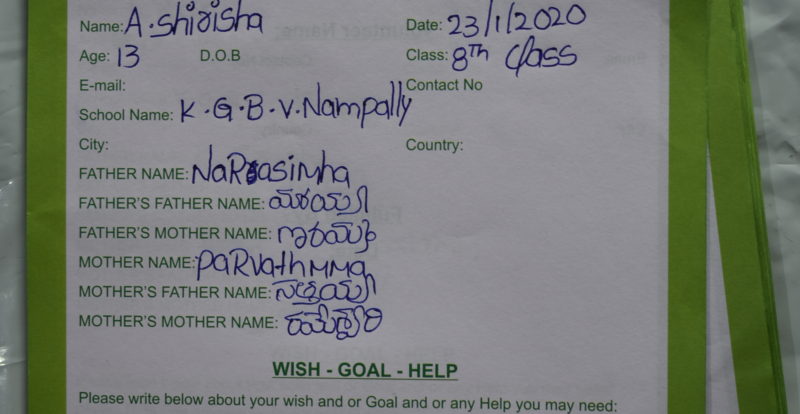 Name: A. Shirisha Date: 23/1/2020
Age: 13 D.O.B Class: 8TH Class
E-mail: Contact No
School Name: K.G.B.V. Nampally
City: Country:
FATHER NAME: NaRasimha
FATHER'S FATHER NAME:
FATHER'S MOTHER NAME:
MOTHER NAME: PaRvathmma
MOTHER'S FATHER NAME: సత్తయ్య
MOTHER'S MOTHER NAME: రామేశ్వరి
WISH - GOAL - HELP
Please write below about your wish and or Goal and or any Help you may need: